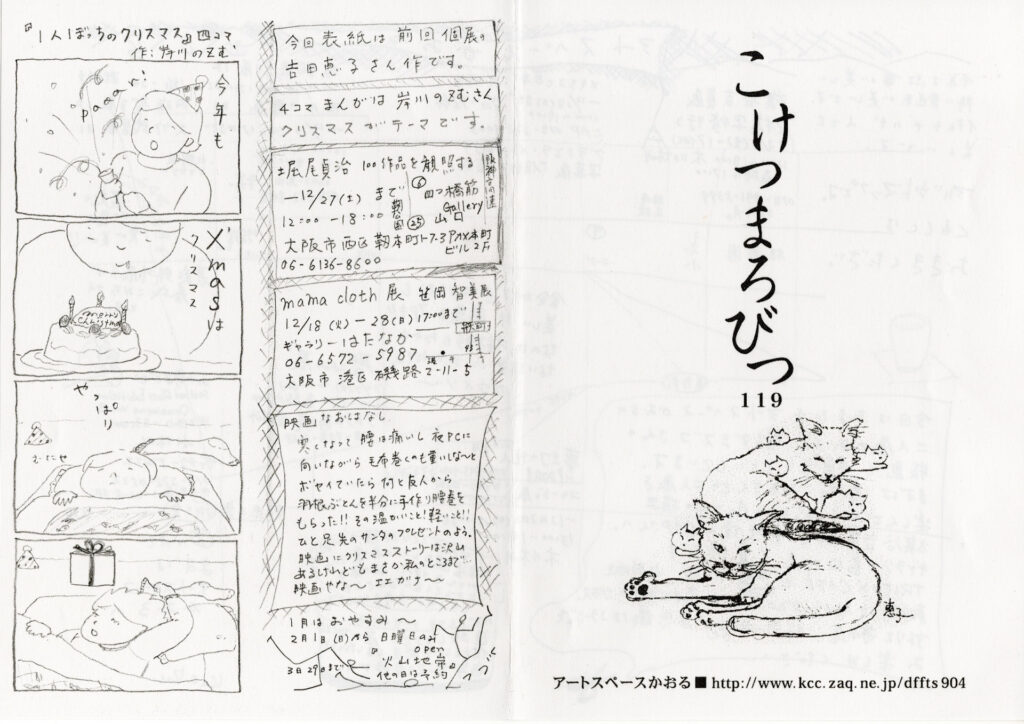 『1人ぼっちのクリスマス』四コマ
作:岸川のぞむ
今年も
Paaan!
X'masは
クリスマス
merry
Christmas
やっぱり
むにゃ
今回表紙は前回個展の
吉田恵子さん作です。
4コマまんがは岸川のぞむさん
クリスマスがテーマです。
堀尾貞治 100作品を観照する
―12/27(土)まで
12:00 -18:00
四つ橋筋
Gallery
山口
大阪市西区靱本町1-7-3 PAX本町
ビル2F
06-6136-8600
mama cloth 展 笹岡智美展
12/18(火)―28(日)17:00まで
ギャラリーはたなか
06-6572-5987
大阪市港区磯路2-11-5
映画なおはなし
寒くなって腰は痛いし夜PCに
向いながら毛布巻くのも重いしな~と
ボヤイていたら何と友人から
羽根ぶとんを半分に手作り腰巻を
もらった!!その温かいこと!軽いこと!!
ひと足先のサンタのプレゼントのよう。
映画にクリスマスストーリーは沢山
あるけれどもまさか私のところまで…
映画やな~ エエガナ~
1月はおやすみ~
2月1日(日)から 日曜日のみ
open
3月29日まで
火山地帯
他の日は予約
つづく
こけつまろびつ
119
恵子
アートスペースかおる■http://www.kcc.zaq.ne.jp/dffts904